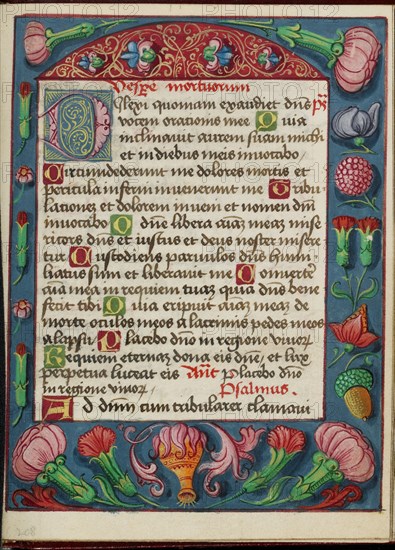 Vespe mortuorum
Dilexi quoniam exaudiet dns ps
vocem orationis mee Quia
inclinavit aurem suam michi
et in diebus meis invocabo
Circumdederunt me dolores mortis et
pericula inferni invenerunt me Tribu
lationez et dolorem inveni et nomen dni
invocabo O dne libera aiaz meaz mise
ricors dns et iustus et deus noster misere
tur Custodiens parvulos dns humi
liatus sum et liberavit me Convertere
aia mea in requiem tuaz quia dns bene
fecit tibi Quia eripuit aiaz meaz de
morte oculos meos a lacrimis pedes meos
a lapsu Placebo dno in regione vivor
Requiem eternaz dona eis dne et lux
perpetua luceat eis Ant Placebo dno
in regione vivor Psalmus
Ad dnm cum tribularer clamavi
208